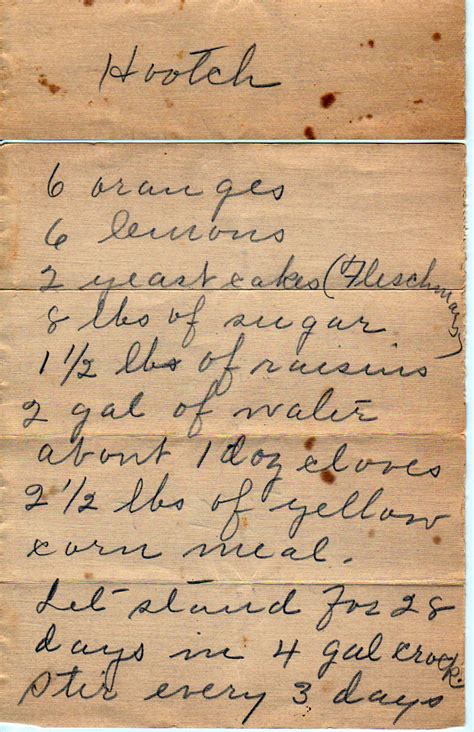 Hootch
6 oranges
6 lemons
2 yeast cakes (Fleischmans)
8 lbs of sugar
1 1/2 lbs of raisins
2 gal of water
about 1 doz cloves
2 1/2 lbs of yellow
corn meal.
Let stand for 28
days in 4 gal crock.
Stir every 3 days